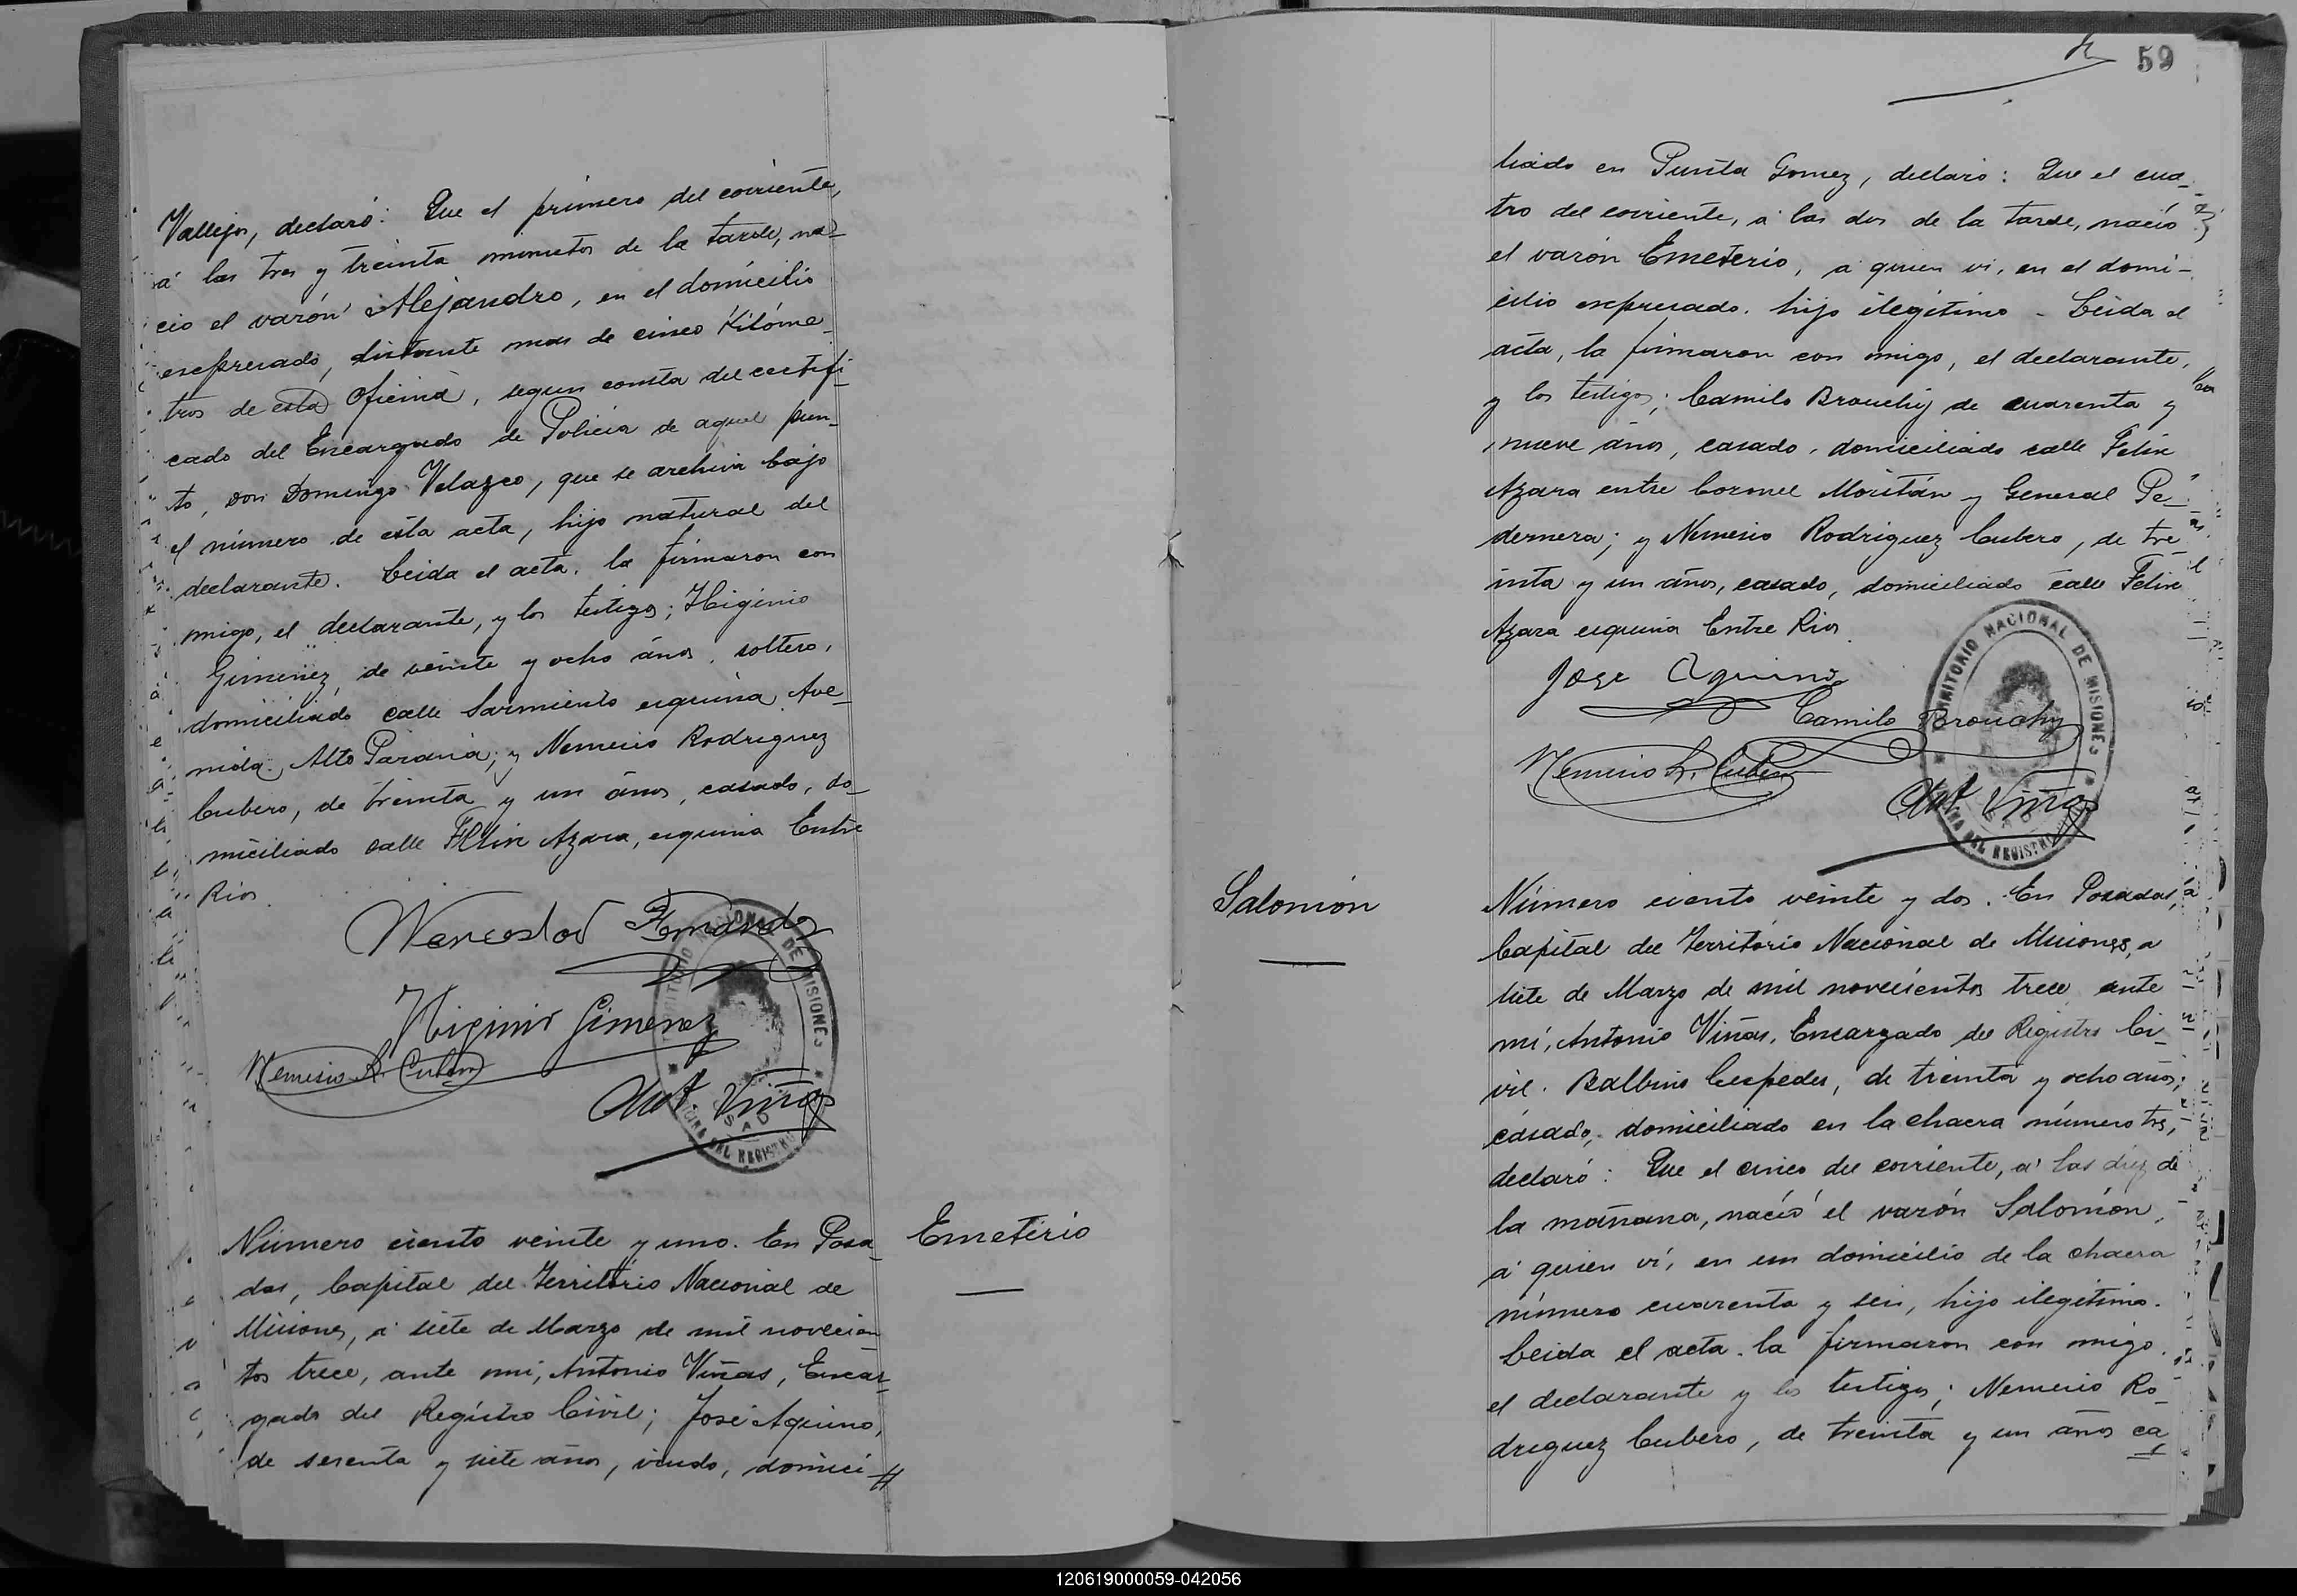 Vallejos, declaró: Que el primero del corriente,
á las tres y treinta minutos de la tarde, na-
ció el varón Alejandro, en el domicilio
expresado, distante mas de cinco Kilóme-
tros de esta Oficina, segun consta del certifi-
cado del Encargado de Policia de aquel pun-
to, don Domingo Velazco, que se archiva bajo
el número de esta acta, hijo natural del
declarante. Leida el acta, la firmaron con
migo, el declarante, y los testigos; Higinio
Gimenez, de veinte y ocho años, soltero,
domiciliado calle Sarmiento esquina Ave-
nida Alto Paraná; y Nemesio Rodriguez
Cubero, de treinta y un años, casado, do-
miciliado calle Felix Azara, esquina Entre
Rios.
Wenceslao Fernandez
Higinio Gimenez
Nemesio R. Cubero
Ant Viñas
TERRITORIO NACIONAL DE MISIONES
Número ciento veinte y uno. En Posa-
das, Capital del Territorio Nacional de
Misiones, á siete de Marzo de mil novecien-
tos trece, ante mi, Antonio Viñas, Encar-
gado del Registro Civil; José Aquino,
de sesenta y siete años, viudo, domici-
Emeterio
59
liado en Punta Gomez, declaró: Que el cua-
tro del corriente, á las dos de la tarde, nació
el varón Emeterio, á quien vi, en el domi-
cilio expresado, hijo ilegítimo - Leida el
acta, la firmaron con migo, el declarante,
y los testigos; Camilo Brouchy de cuarenta y
nueve años, casado, domiciliado calle Felix
Azara entre Coronel Moritán y General Pe-
dernera; y Nemesio Rodriguez Cubero, de tre-
inta y un años, casado, domiciliado calle Felix
Azara esquina Entre Rios.
Jose Aquino
Camilo Brouchy
Nemesio R. Cubero
Ant Viñas
TERRITORIO NACIONAL DE MISIONES
Salomón
Número ciento veinte y dos. En Posadas,
Capital del Territorio Nacional de Misiones, a
siete de Marzo de mil novecientos trece, ante
mí, Antonio Viñas, Encargado del Registro Ci-
vil. Balbino Cespedes, de treinta y ocho años,
casado, domiciliado en la chacra número tres,
declaró: Que el cinco del corriente, á las diez de
la mañana, nació el varón Salomón,
á quien ví, en un domicilio de la chacra
número cuarenta y seis, hijo ilegítimo.
Leida el acta, la firmaron con migo,
el declarante y los testigos; Nemesio Ro-
driguez Cubero, de treinta y un años ca-
120619000059-042056